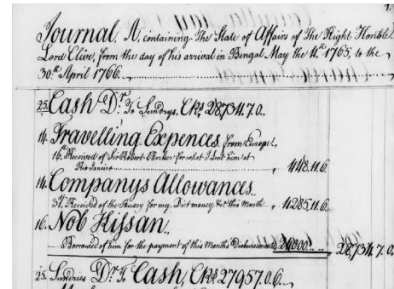 Journal. A. containing The State of Affairs of The Right Honble
Lord Clive, from the day of his arrival in Bengal May the 1765, to the
30th April 1766.
25. Cash Dr. To Sundrys, CRs 28734.7.0.
14. Travelling Expences, from Europe.
16th Received of Sir Robert for what I lent him at
448.11.6.
14. Companys Allowances.
Received of the for my Diet money &c this Month 4285.11.6.
16. Nob Kissan.
Borrowed of him for the payment of this Months Disbursements 24000.. 28,734.7.0.
25. Sundries Dr. To Cash, CRs 27957.0.6.